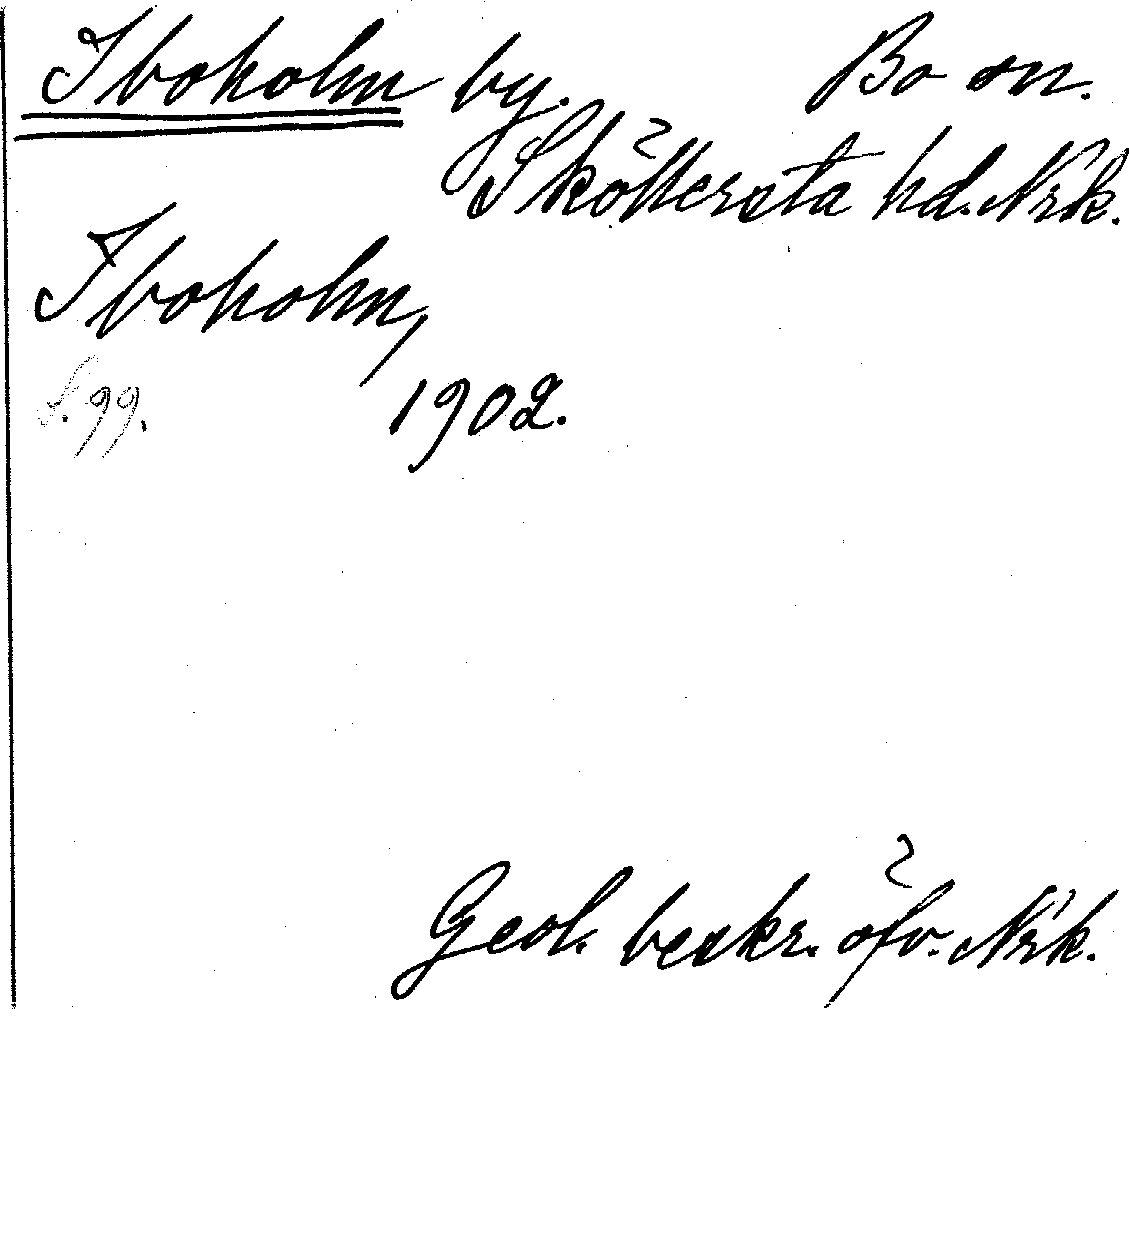 Iboholm by. Bo sn.
Sköllersta hd. Nrk.
Iboholm,
S. 99.
1902.
Geol. beskr. öfv. Nrk.